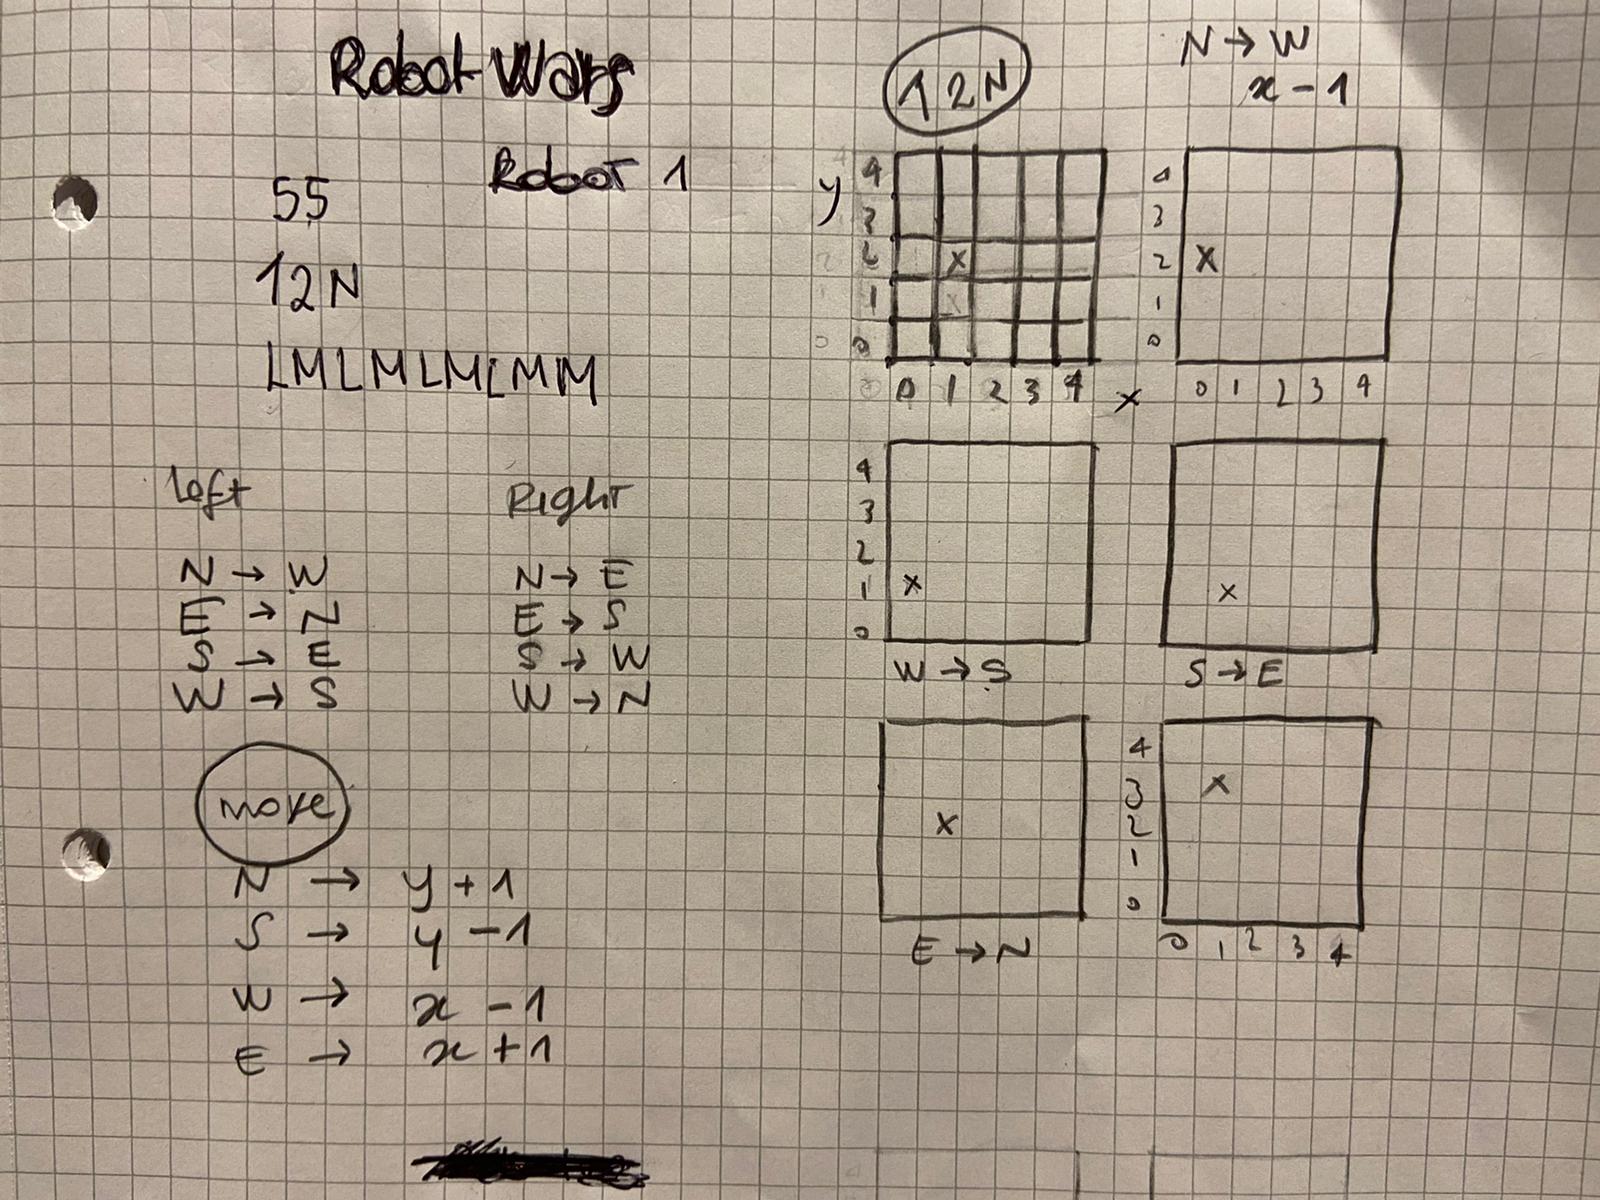 Robot Wars
Robot 1
55
12N
LMLMLMLMM
left
N → W
E → N
S → E
W → S
Right
N → E
E → S
S → W
W → N
move
N → y + 1
S → y - 1
W → x - 1
E → x + 1
12N
y
4
3
2
1
0
0 1 2 3 4 x
N → W
x - 1
4
3
2
1
0
0 1 2 3 4
4
3
2
1
0
W → S
S → E
E → N
4
3
2
1
0
0 1 2 3 4